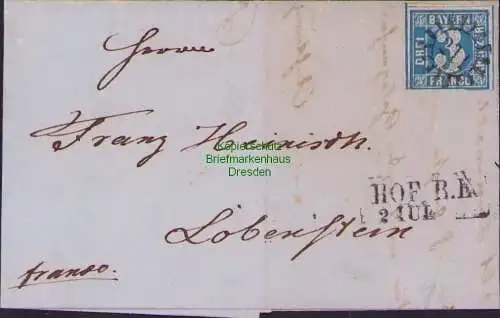 BAYERN
DREI
3
FRANCO
Herrn
Franz Heinisch.
Kopierschutz
Briefmarkenhaus
Dresden
HOF B.H.
2 JUL
Lobenstein
franco.